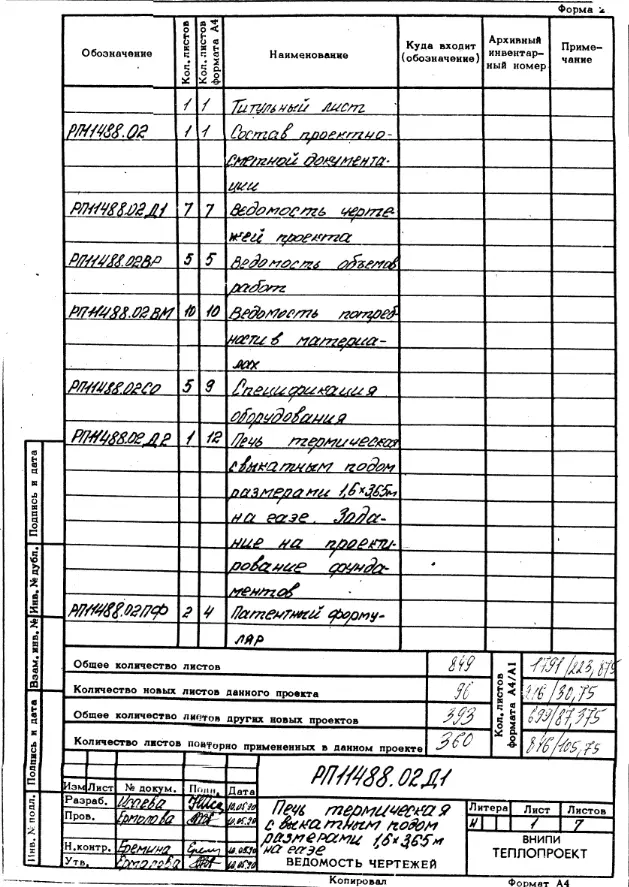 Форма 2
Обозначение
Кол. листов
Кол. листов формата А4
Наименование
Куда входит (обозначение)
Архивный инвентарный номер
Примечание
1 1 Титульный лист
РП11488.02 1 1 Состав проектно-
сметной документа-
ции
РП11488.02Д1 7 7 Ведомость черте-
жей проекта
РП11488.02ВР 5 5 Ведомость объемов
работ
РП11488.02ВМ 10 10 Ведомость потреб-
ности в материа-
лах
РП11488.02СО 5 9 Спецификация
оборудования
РП11488.02Д2 1 12 Печь термическая
с выкатным подом
размерами 1,6×3,65м
на газе. Зада-
ние на проекти-
рование фунда-
ментов
РП11488.02ПФ 2 4 Патентный форму-
ляр
Общее количество листов 849
Количество новых листов данного проекта 96
Общее количество листов других новых проектов 393
Количество листов повторно примененных в данном проекте 360
Кол. листов формата А4/А1
1791/223,875
216/30,75
699/87,375
846/105,75
Инв. № подл. Подпись и дата Взам. инв. № Инв. № дубл. Подпись и дата
РП11488.02Д1
Изм Лист № докум. Подп. Дата
Разраб. Исаева
Пров. Ермолова
Н.контр. Еремина
Утв. Ермолова
Печь термическая
с выкатным подом
размерами 1,6×3,65м
на газе
ВЕДОМОСТЬ ЧЕРТЕЖЕЙ
Литера Лист Листов
И 1 7
ВНИПИ
ТЕПЛОПРОЕКТ
Копировал Формат А4